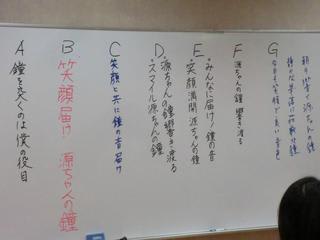 A 鐘を突くのは僕の役目
B 笑顔届け! 源ちゃんの鐘
C 笑顔と共に鐘の音届け
D ・源ちゃんの鐘響き渡る
・スマイル源ちゃんの鐘
E ・みんなに届け!鐘の音
・笑顔満開 源ちゃんの鐘
F 源ちゃんの鐘 響き渡る
G